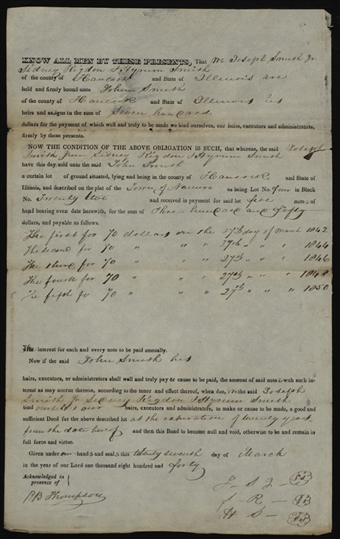 KNOW ALL MEN BY THESE PRESENTS, That We Joseph Smith Jr
Sidney Rigdon & Hyrum Smith
of the county of Hancock and State of Illinois are
held and firmly bound unto John Smith
of the county of Hancock & State of Illinois his
heirs and assigns in the sum of Seven hundred
dollars for the payment of which well and truly to be made we bind ourselves, our heirs, executors and administrators,
firmly by these presents.
NOW THE CONDITION OF THE ABOVE OBLIGATION IS SUCH, that whereas, the said Joseph
Smith Jun Sidney Rigdon & Hyrum Smith
have this day sold unto the said John Smith
a certain lot of ground situated, lying and being in the county of Hancock and State of
Illinois, and described on the plat of the Town of Nauvoo as being Lot No. Four in Block
No. Twenty two and received in payment for said lot five notes; of
hand bearing even date herewith, for the sum of Three hundred and fifty
dollars, and payable as follows.
The first for 70 dollars on the 27th day of March 1842
The second for 70 " " " 27th " " " 1844
The third for 70 " " " 27th " " " 1846
The fourth for 70 " " " 27th " " " 1848
The fifth for 70 " " " 27th " " " 1850
The interest for each and every note to be paid annually.
Now if the said John Smith his
heirs, executors, or administrators shall well and truly pay or cause to be paid, the amount of said notes with such in-
terest as may accrue thereon, according to the tenor and effect thereof, when due, the said Joseph
Smith Jr Sidney Rigdon & Hyrum Smith
our heirs, executors and administrators, to make or cause to be made, a good and
sufficient Deed for the above described lot at the expiration of twenty years
from the date hereof and then this Bond to become null and void, otherwise to be and remain in
full force and virtue.
Given under our hands and seals, this twenty seventh day of March
in the year of our Lord one thousand eight hundred and forty
Acknowledged in
presence of
R B Thompson
J— S J—
S— R—
H— S—